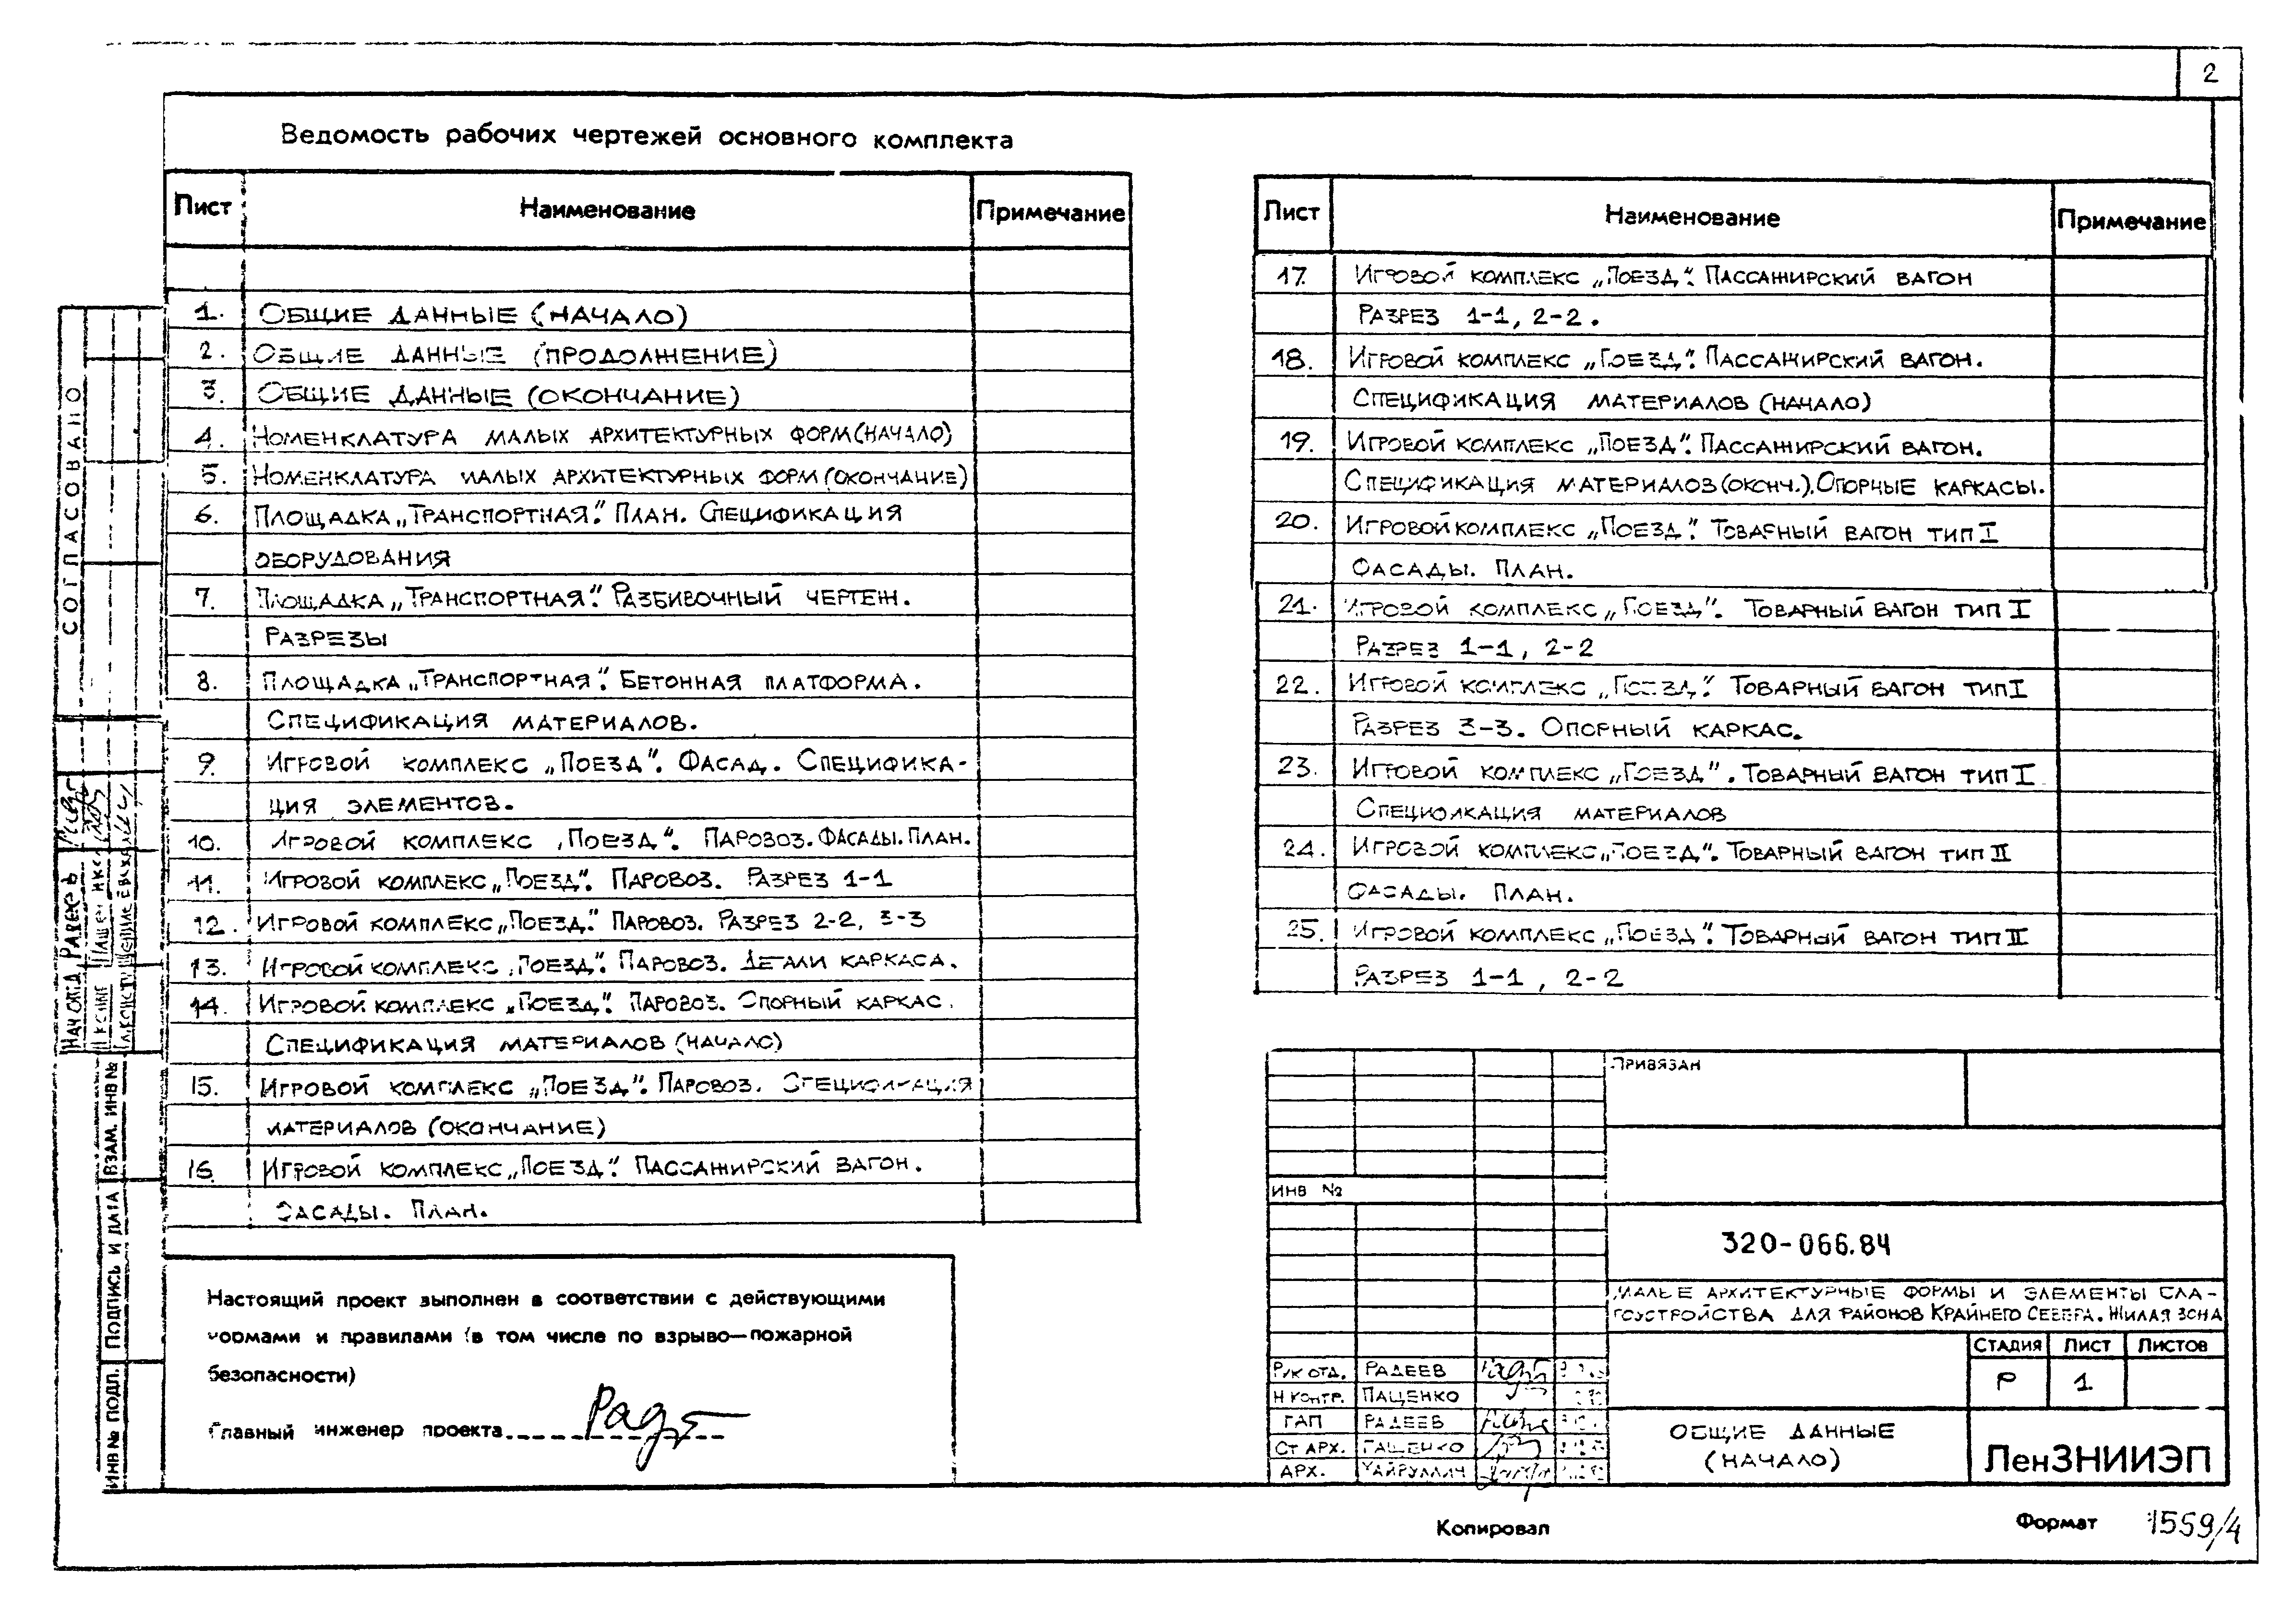 2
Ведомость рабочих чертежей основного комплекта
Лист Наименование Примечание
1. Общие данные (начало)
2. Общие данные (продолжение)
3. Общие данные (окончание)
4. Номенклатура малых архитектурных форм (начало)
5. Номенклатура малых архитектурных форм (окончание)
6. Площадка „Транспортная". План. Спецификация
оборудования
7. Площадка „Транспортная". Разбивочный чертеж.
Разрезы
8. Площадка „Транспортная". Бетонная платформа.
Спецификация материалов.
9. Игровой комплекс „Поезд". Фасад. Специфика-
ция элементов.
10. Игровой комплекс „Поезд". Паровоз. Фасады. План.
11. Игровой комплекс „Поезд". Паровоз. Разрез 1-1
12. Игровой комплекс „Поезд". Паровоз. Разрез 2-2, 3-3
13. Игровой комплекс „Поезд". Паровоз. Детали каркаса.
14. Игровой комплекс „Поезд". Паровоз. Опорный каркас.
Спецификация материалов (начало)
15. Игровой комплекс „Поезд". Паровоз. Спецификация
материалов (окончание)
16. Игровой комплекс „Поезд". Пассажирский вагон.
Фасады. План.
Лист Наименование Примечание
17. Игровой комплекс „Поезд". Пассажирский вагон
Разрез 1-1, 2-2.
18. Игровой комплекс „Поезд". Пассажирский вагон.
Спецификация материалов (начало)
19. Игровой комплекс „Поезд". Пассажирский вагон.
Спецификация материалов (оконч.). Опорные каркасы.
20. Игровой комплекс „Поезд". Товарный вагон тип I
Фасады. План.
21. Игровой комплекс „Поезд". Товарный вагон тип I
Разрез 1-1, 2-2
22. Игровой комплекс „Поезд". Товарный вагон тип I
Разрез 3-3. Опорный каркас.
23. Игровой комплекс „Поезд". Товарный вагон тип I
Спецификация материалов
24. Игровой комплекс „Поезд". Товарный вагон тип II
Фасады. План.
25. Игровой комплекс „Поезд". Товарный вагон тип II
Разрез 1-1, 2-2
Настоящий проект выполнен в соответствии с действующими
нормами и правилами (в том числе по взрыво-пожарной
безопасности)
Главный инженер проекта
Привязан
Инв №
320-066.84
Малые архитектурные формы и элементы бла-
гоустройства для районов Крайнего Севера. Жилая зона
Стадия Лист Листов
Р 1
Рук отд. Радеев
Н контр. Пащенко
ГАП Радеев
Ст арх. Пащенко
Арх. Хайруллин
Общие данные
(начало)
ЛенЗНИИЭП
Копировал
Формат 1559/4
Согласовано
Нач отд Радеев
Инв № подл. Подпись и дата Взам. инв №